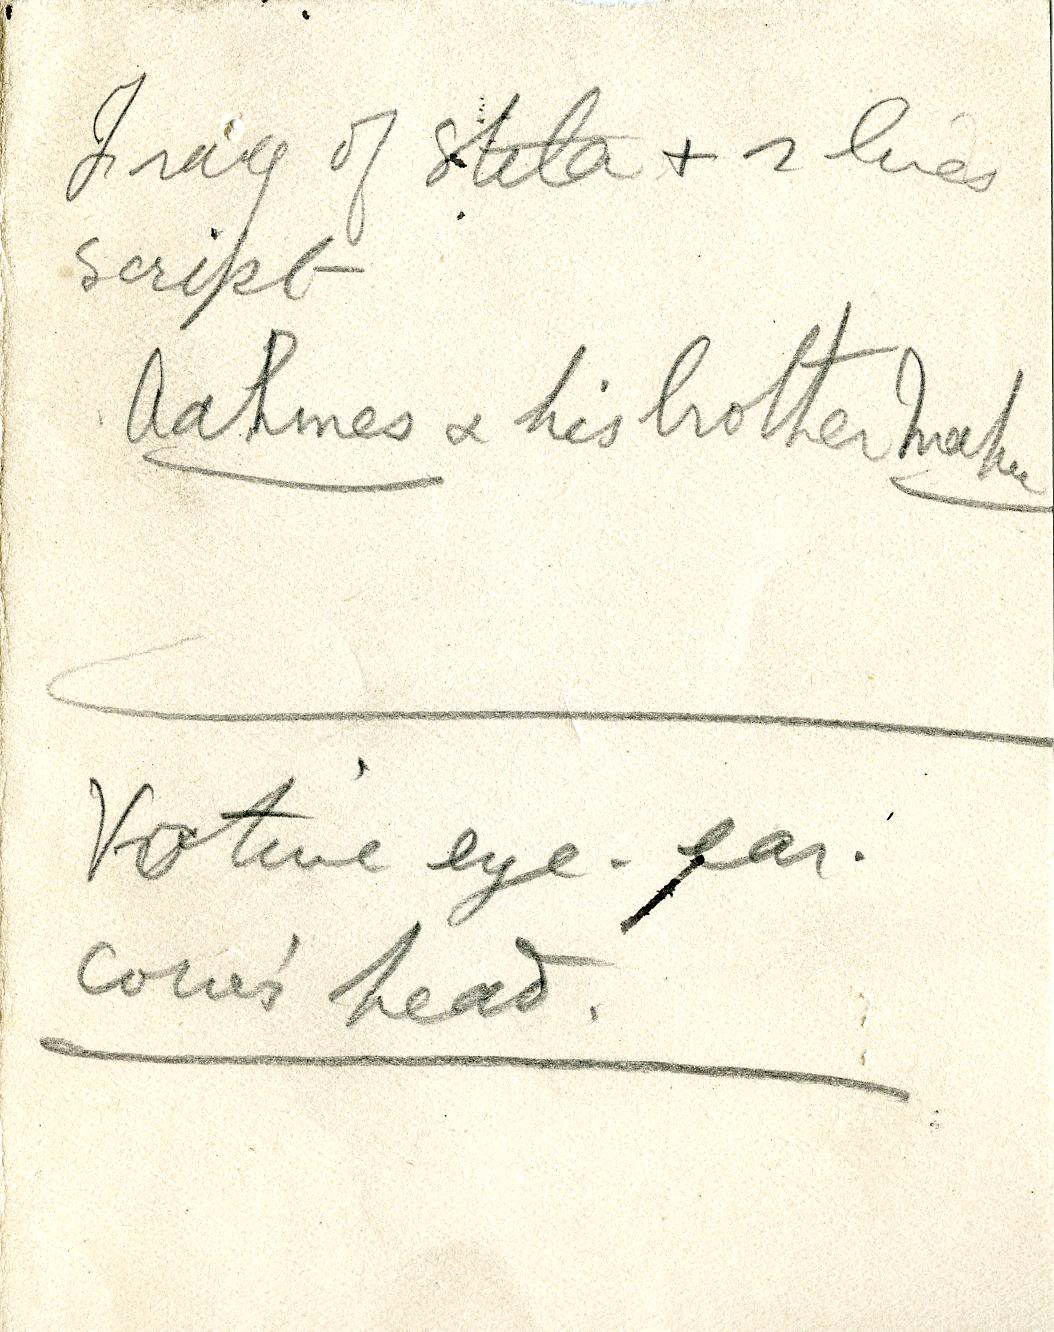 Frag of stela + 2 lines
script
Aahmes & his brother Mahu
Votive eye - ear.
cow's head.